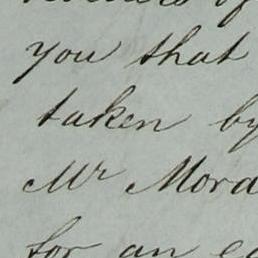 you that
taken by
Mr Mord
for an